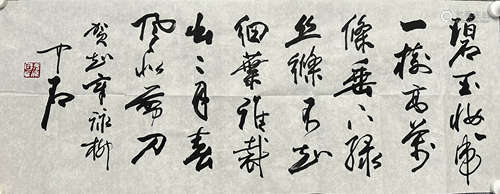 碧玉妆成
一树高萬
條垂下绿
丝绦不知
细葉谁裁
出二月春
风似剪刀
贺知章咏柳
中石